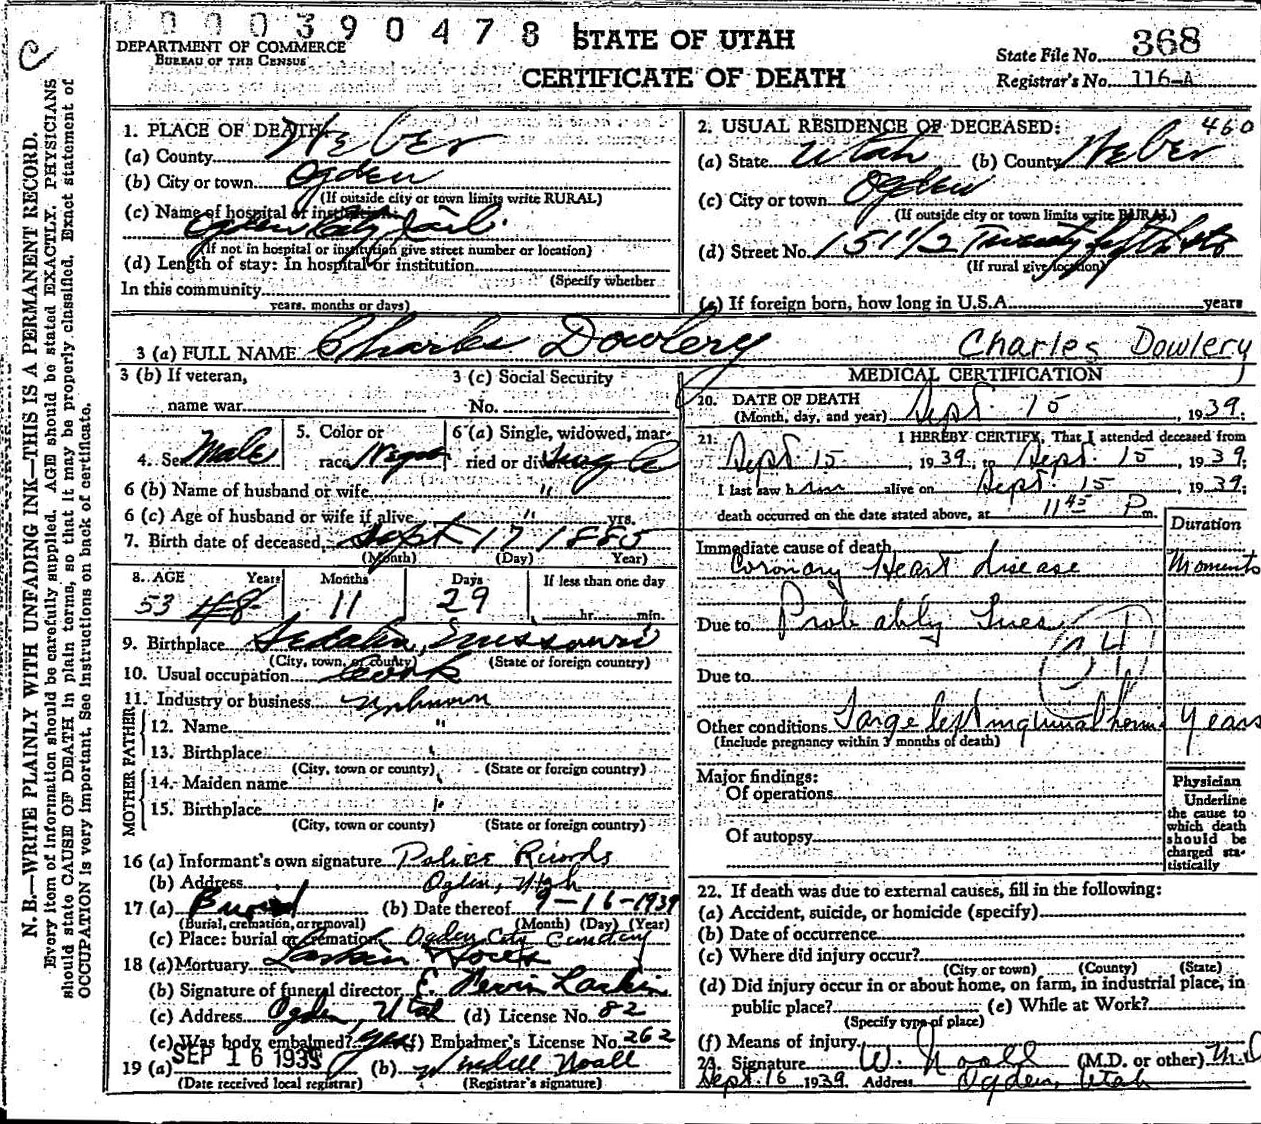 0000390478
STATE OF UTAH
CERTIFICATE OF DEATH
DEPARTMENT OF COMMERCE
BUREAU OF THE CENSUS
State File No. 368
Registrar's No. 116-A
C
N. B.—WRITE PLAINLY WITH UNFADING INK—THIS IS A PERMANENT RECORD.
Every item of information should be carefully supplied. AGE should be stated EXACTLY. PHYSICIANS
should state CAUSE OF DEATH in plain terms, so that it may be properly classified. Exact statement of
OCCUPATION is very important. See Instructions on back of certificate.
1. PLACE OF DEATH:
(a) County Weber
(b) City or town Ogden
(If outside city or town limits write RURAL)
(c) Name of hospital or institution:
Ogden City Jail
(If not in hospital or institution give street number or location)
(d) Length of stay: In hospital or institution
(Specify whether
In this community
years, months or days)
2. USUAL RESIDENCE OF DECEASED: 460
(a) State Utah (b) County Weber
(c) City or town Ogden
(If outside city or town limits write RURAL)
(d) Street No. 151 1/2 Twenty fifth st
(If rural give location)
(e) If foreign born, how long in U.S.A. years
3 (a) FULL NAME Charles Dowlery Charles Dowlery
3 (b) If veteran,
name war
3 (c) Social Security
No.
4. Sex Male
5. Color or
race Negro
6 (a) Single, widowed, mar-
ried or divorced Single
6 (b) Name of husband or wife "
6 (c) Age of husband or wife if alive " yrs.
7. Birth date of deceased Sept 17 1885
(Month) (Day) Year)
8. AGE Years Months Days If less than one day
53 48 11 29 hr. min.
9. Birthplace Sedalia, Missouri
(City, town, or county) (State or foreign country)
10. Usual occupation Cook
11. Industry or business Unknown
FATHER
12. Name "
13. Birthplace "
(City, town or county) (State or foreign country)
MOTHER
14. Maiden name "
15. Birthplace "
(City, town or county) (State or foreign country)
16 (a) Informant's own signature Police Records
(b) Address Ogden, Utah
17 (a) Buried (b) Date thereof 9-16-1939
(Burial, cremation, or removal) (Month) (Day) (Year)
(c) Place: burial or cremation Ogden City Cemetery
18 (a) Mortuary Larkin & Sons
(b) Signature of funeral director Larkin
(c) Address Ogden, Utah (d) License No. 82
(e) Was body embalmed? yes (f) Embalmer's License No. 262
19 (a) SEP 16 1939 (b) Noall
(Date received local registrar) (Registrar's signature)
MEDICAL CERTIFICATION
20. DATE OF DEATH
(Month, day, and year) Sept. 15, 1939;
21. I HEREBY CERTIFY, That I attended deceased from
Sept 15, 1939, to Sept. 15, 1939;
I last saw h him alive on Sept. 15, 1939;
death occurred on the date stated above, at 11 45 P m.
Duration
Immediate cause of death
Coronary Heart disease Moments
Due to Probably Lues
Due to
Other conditions Large left inguinal hernia years
(Include pregnancy within 3 months of death)
Major findings:
Of operations
Of autopsy
Physician
Underline
the cause to
which death
should be
charged sta-
tistically
22. If death was due to external causes, fill in the following:
(a) Accident, suicide, or homicide (specify)
(b) Date of occurrence
(c) Where did injury occur?
(City or town) (County) (State)
(d) Did injury occur in or about home, on farm, in industrial place, in
public place? (e) While at Work?
(Specify type of place)
(f) Means of injury
23. Signature W. Noall (M.D. or other) M.D
Sept. 16 1939 Address Ogden, Utah